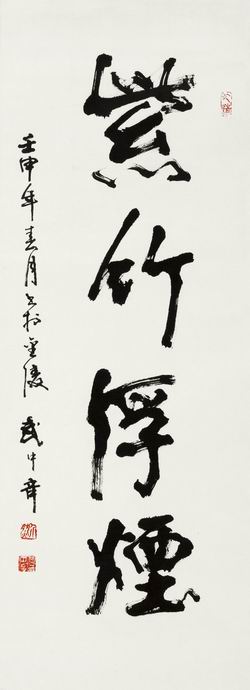 紫竹浮煙
壬申年春月書於金陵 武中奇